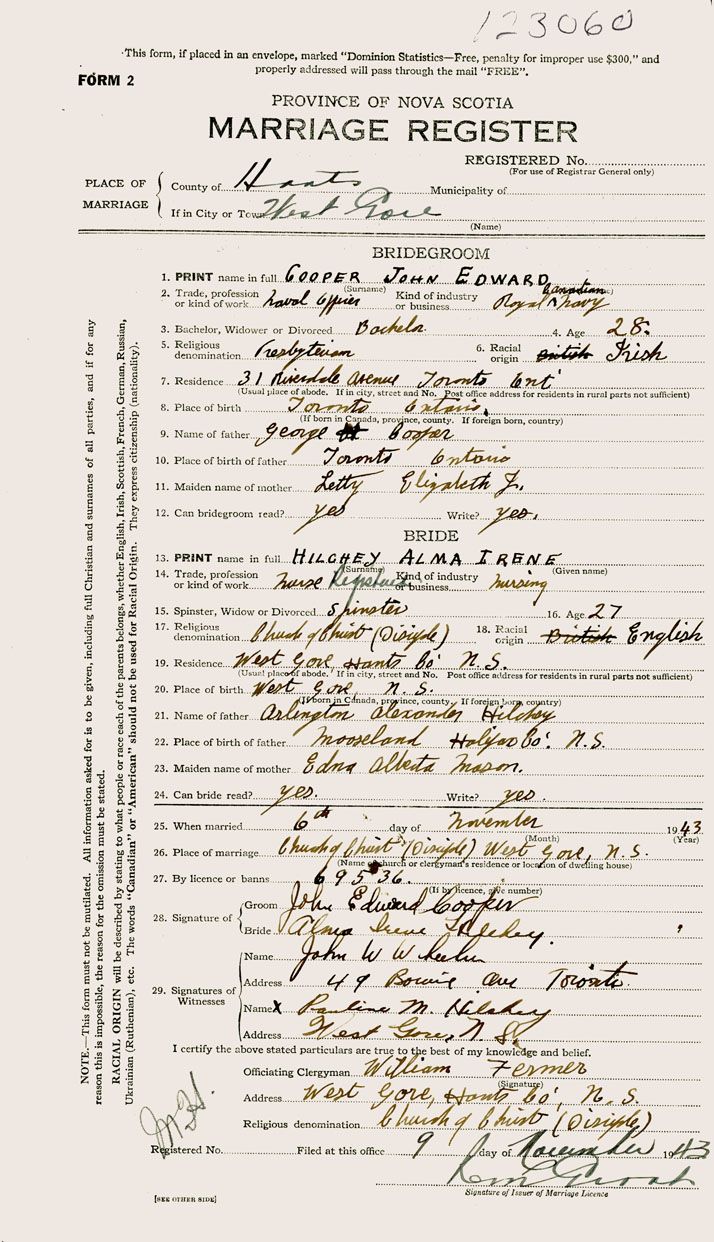 123060
This form, if placed in an envelope, marked “Dominion Statistics—Free, penalty for improper use $300,” and
properly addressed will pass through the mail “FREE”.
FORM 2
PROVINCE OF NOVA SCOTIA
MARRIAGE REGISTER
REGISTERED No.
(For use of Registrar General only)
PLACE OF MARRIAGE
County of Hants Municipality of
If in City or Town West Gore
(Name)
BRIDEGROOM
1. PRINT name in full COOPER JOHN EDWARD
(Surname)
2. Trade, profession or kind of work Naval Officer Kind of industry or business Royal Canadian Navy
3. Bachelor, Widower or Divorced Bachelor 4. Age 28.
5. Religious denomination Presbyterian 6. Racial origin British Irish
7. Residence 31 Riverdale Avenue Toronto Ont
(Usual place of abode. If in city, street and No. Post office address for residents in rural parts not sufficient)
8. Place of birth Toronto Ontario
(If born in Canada, province, county. If foreign born, country)
9. Name of father George Cooper
10. Place of birth of father Toronto Ontario
11. Maiden name of mother Letty Elizabeth
12. Can bridegroom read? yes Write? yes.
BRIDE
13. PRINT name in full HILCHEY ALMA IRENE
(Surname) (Given name)
14. Trade, profession or kind of work nurse Registered Kind of industry or business nursing
15. Spinster, Widow or Divorced Spinster 16. Age 27
17. Religious denomination Church of Christ (Disciple) 18. Racial origin British English
19. Residence West Gore, Hants Co. N.S.
(Usual place of abode. If in city, street and No. Post office address for residents in rural parts not sufficient)
20. Place of birth West Gore, N.S.
(If born in Canada, province, county. If foreign born, country)
21. Name of father Arlington Alexander Hilchey
22. Place of birth of father Mooseland Halifax Co. N.S.
23. Maiden name of mother Edna Alberta Mason.
24. Can bride read? yes. Write? yes.
25. When married 6th day of November 1943
(Month) (Year)
26. Place of marriage Church of Christ (Disciple) West Gore, N.S.
(Name of church or clergyman's residence or location of dwelling house)
27. By licence or banns 69536.
(If by licence, give number)
28. Signature of
Groom John Edward Cooper
Bride Alma Irene Hilchey.
29. Signatures of Witnesses
Name John W
Address 49 Bowie Ave Toronto
Name X Pauline M. Hilchey
Address West Gore, N.S.
I certify the above stated particulars are true to the best of my knowledge and belief.
Officiating Clergyman William Fermer
(Signature)
Address West Gore, Hants Co. N.S.
Religious denomination Church of Christ (Disciple)
Registered No. Filed at this office 9 day of November 1943
Signature of Issuer of Marriage Licence
[SEE OTHER SIDE]
NOTE.—This form must not be mutilated. All information asked for is to be given, including full Christian and surnames of all parties, and if for any
reason this is impossible, the reason for the omission must be stated.
RACIAL ORIGIN will be described by stating to what people or race each of the parents belongs, whether English, Irish, Scottish, French, German, Russian,
Ukrainian (Ruthenian), etc. The words “Canadian” or “American” should not be used for Racial Origin. They express citizenship (nationality).